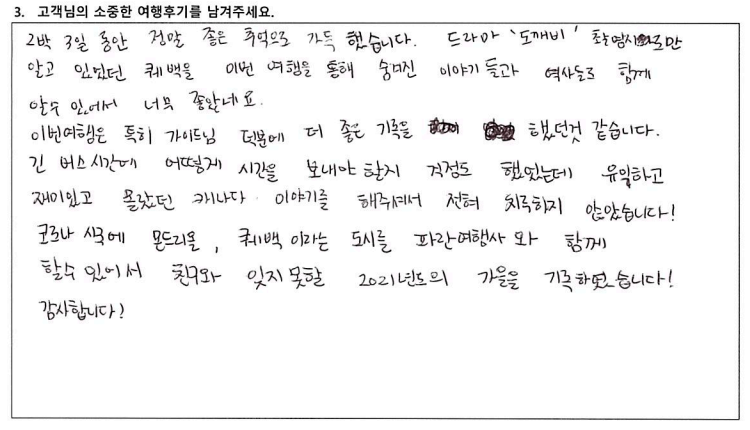 3. 고객님의 소중한 여행후기를 남겨주세요.
2박 3일 동안 정말 좋은 추억으로 가득 했습니다. 드라마 '도깨비' 촬영지로만
알고 있었던 퀘백을 이번 여행을 통해 숨겨진 이야기 들과 역사들로 함께
알수 있어서 너무 좋았네요.
이번여행은 특히 가이드님 덕분에 더 좋은 기록을 했던것 같습니다.
긴 버스시간에 어떻게 시간을 보내야 할지 걱정도 했었는데 유익하고
재미있고 몰랐던 캐나다 이야기를 해주셔서 전혀 지루하지 않았습니다!
코로나 시국에 몬트리올, 퀘백 이라는 도시를 파란여행사 와 함께
할수 있어서 친구와 잊지 못할 2021년도의 가을을 기록하였습니다!
감사합니다!